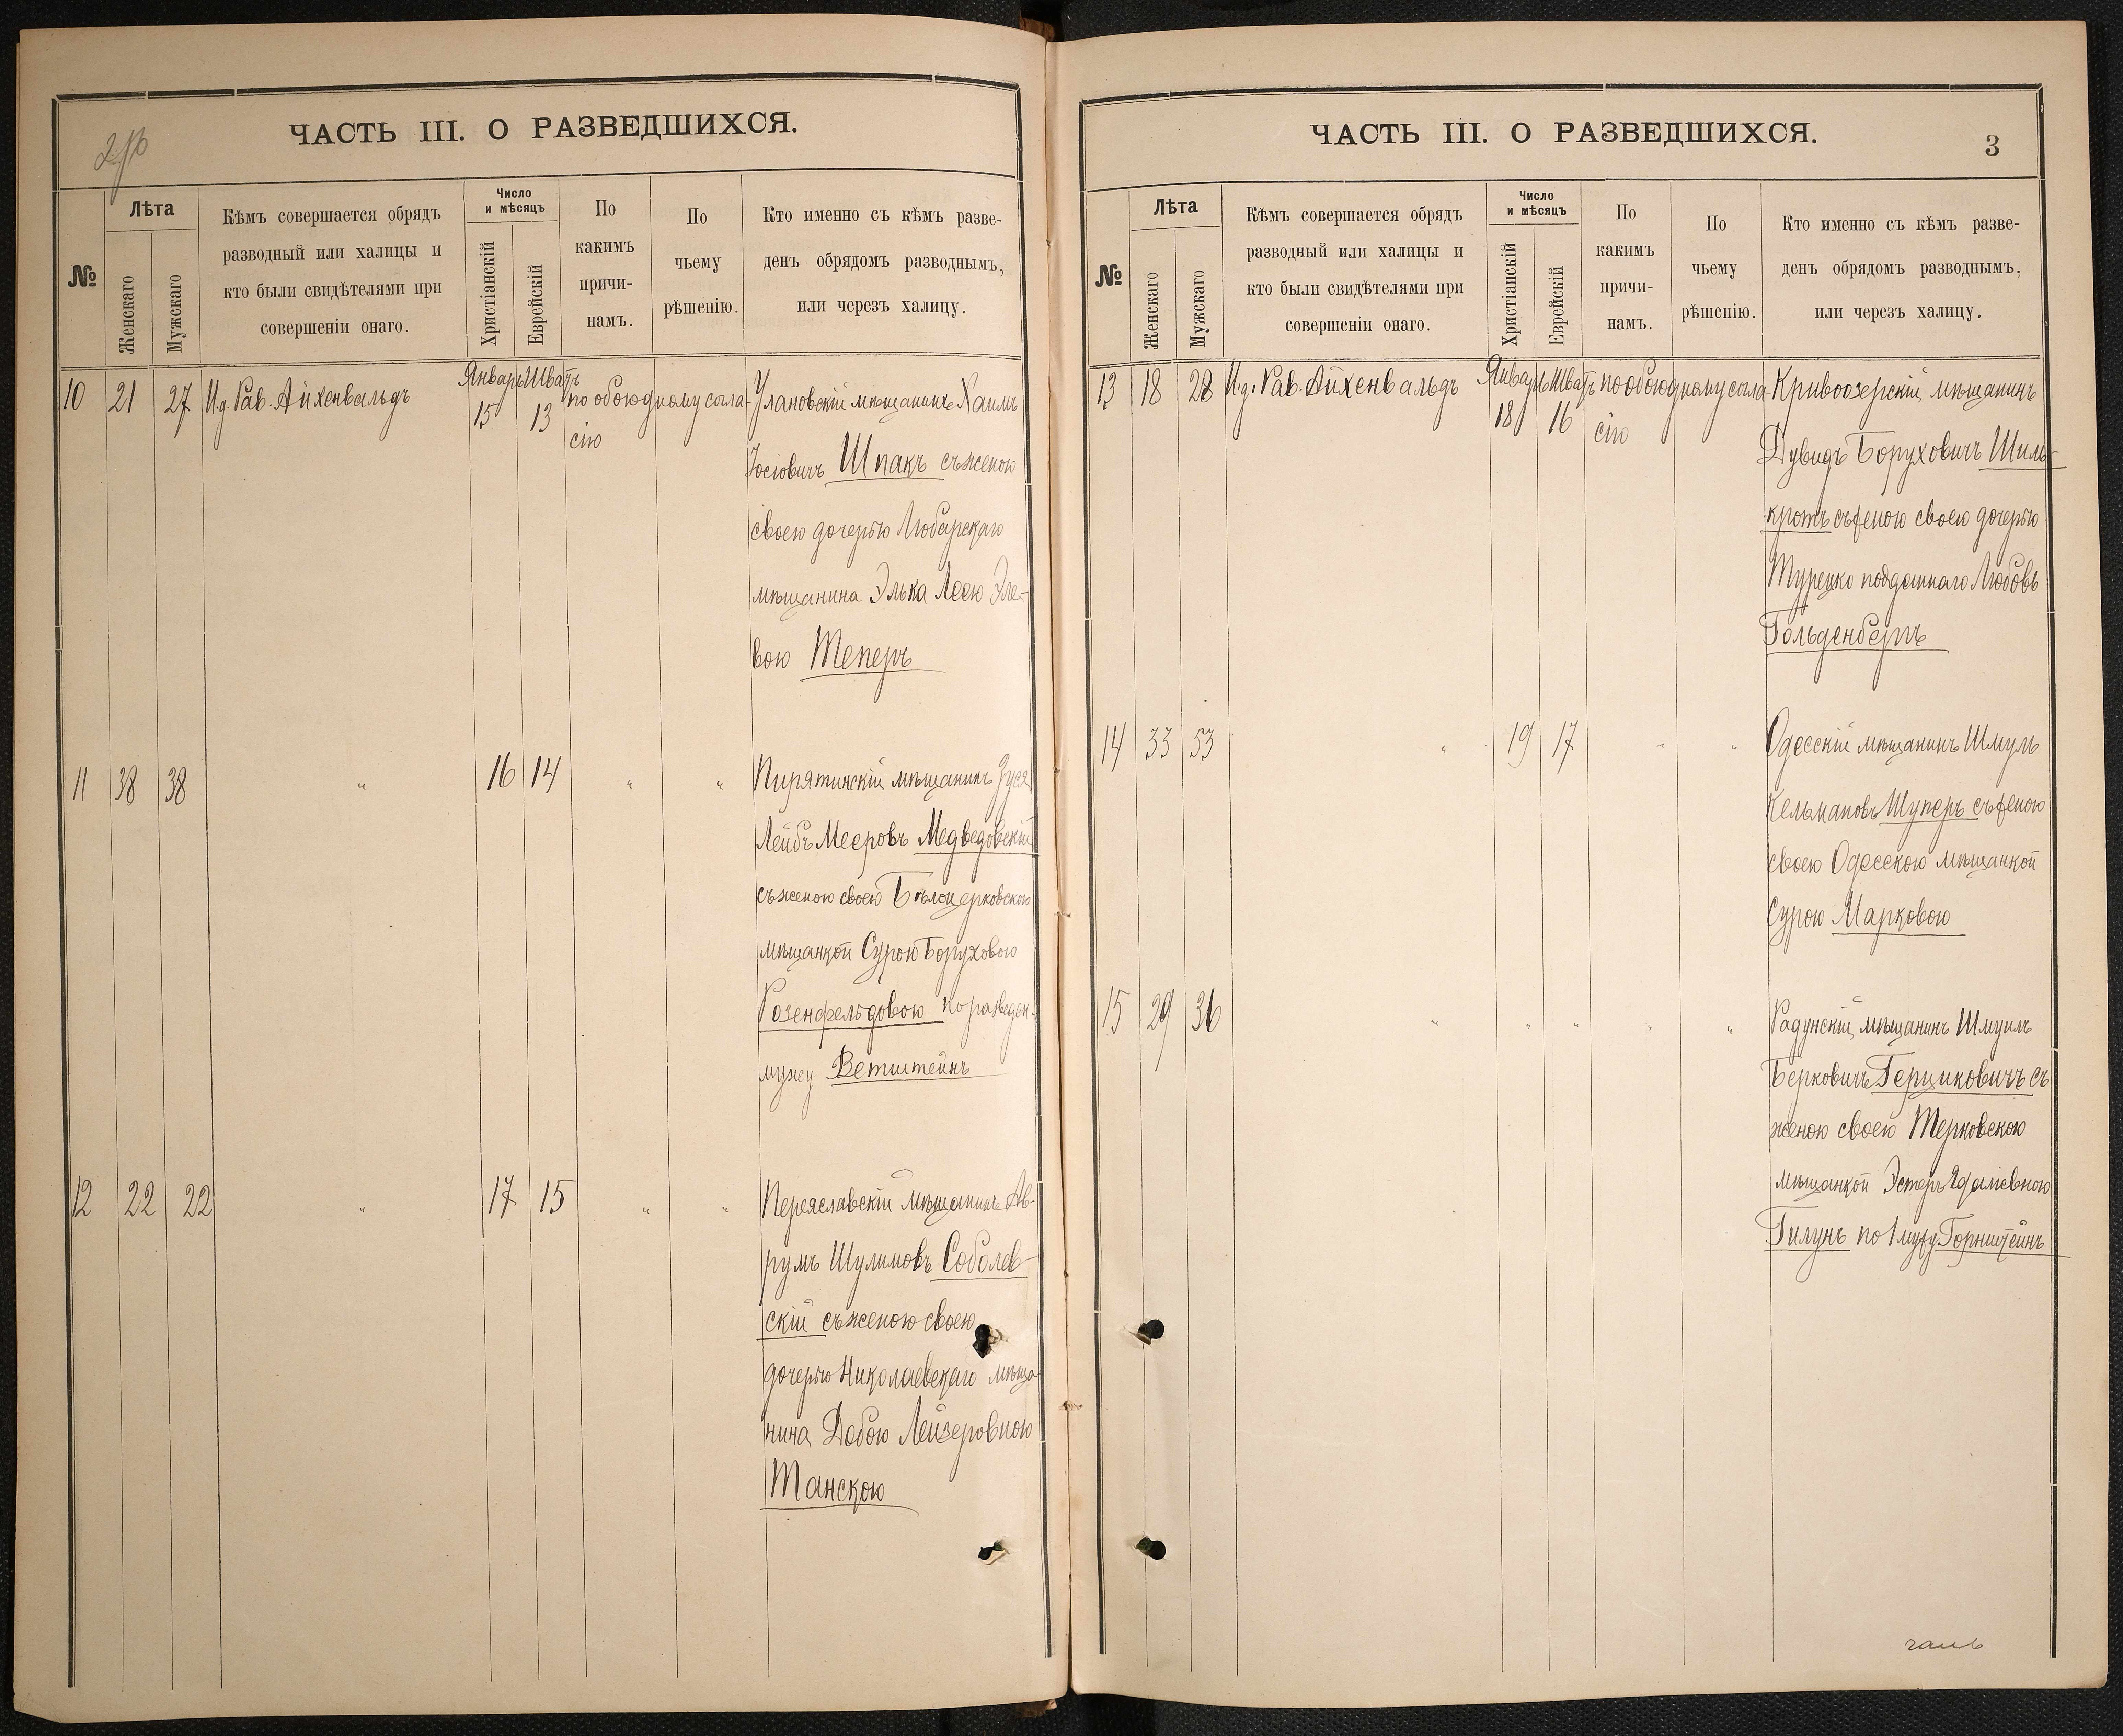 ЧАСТЬ III. О РАЗВЕДШИХСЯ.
№
Лѣта
Женскаго
Мужскаго
Кѣмъ совершается обрядъ
разводный или халицы и
кто были свидѣтелями при
совершеніи онаго.
Число
и мѣсяцъ
Христіанскій
Еврейскій
По
какимъ
причи-
намъ.
По
чьему
рѣшенію.
Кто именно съ кѣмъ разве-
денъ обрядомъ разводнымъ,
или черезъ халицу.
10 21 27 И.д. Рав. Айхенвальдъ Январь 15 Шватъ 13 по обоюдному согла-
сію
Улановскій мѣщанинъ Хаимъ
Іосіовичъ Шпакъ съ женою
своею дочерью Любарскаго
мѣщанина Элька Леею Эле-
вою Теперъ
11 38 38 " 16 14 " "
Пирятинскій мѣщанинъ Зуся
Лейбъ Мееровъ Медведовскій
съ женою своею Бѣлоцерковскою
мѣщанкой Сурою Боруховою
Розенфельдовою по разведен.
мужу Ветштейнъ
12 22 22 " 17 15 " "
Переяславскій мѣщанинъ Ав-
румъ Шулимовъ Соболев-
скій съ женою своею
дочерью Николаевскаго мѣща-
нина Добою Лейзеровною
Танскою
ЧАСТЬ III. О РАЗВЕДШИХСЯ.
3
№
Лѣта
Женскаго
Мужскаго
Кѣмъ совершается обрядъ
разводный или халицы и
кто были свидѣтелями при
совершеніи онаго.
Число
и мѣсяцъ
Христіанскій
Еврейскій
По
какимъ
причи-
намъ.
По
чьему
рѣшенію.
Кто именно съ кѣмъ разве-
денъ обрядомъ разводнымъ,
или черезъ халицу.
13 18 28 И.д. Рав. Айхенвальдъ Январь 18 Шватъ 16 по обоюдному согла-
сію
Кривоозерскій мѣщанинъ
Дувидъ Боруховичъ Шиль-
кротъ съ женою своею дочерью
Турецко подданнаго Любовь
Гольденбергъ
14 33 53 " 19 17 " "
Одесскій мѣщанинъ Шмуль
Кельмановъ Шуперъ съ женою
своею Одесскою мѣщанкой
Сурою Марковою
15 29 36 " " " " "
Радунскій мѣщанинъ Шмуилъ
Берковичъ Герциковичъ съ
женою своею Терковскою
мѣщанкой Эстеръ
Гилунь по 1 мужу Горнштейнъ